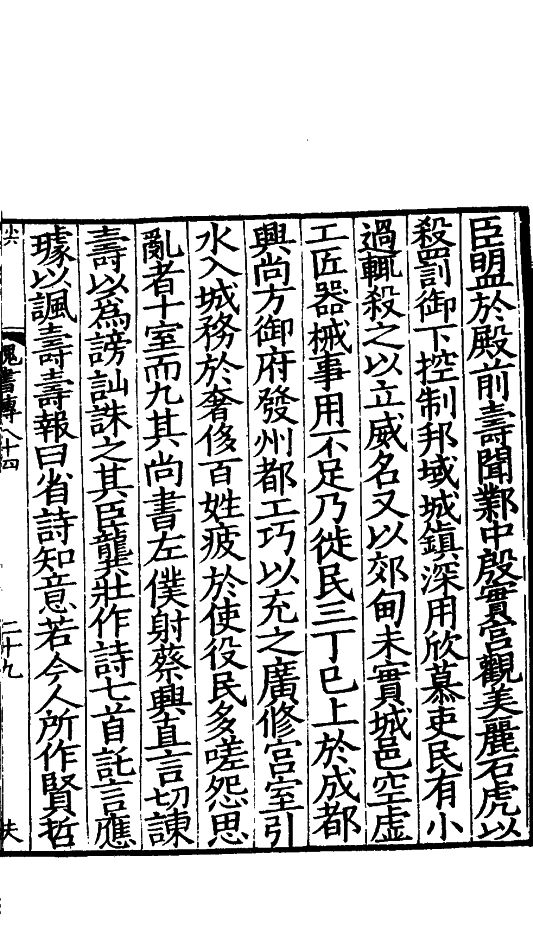 臣盟於殿前壽聞鄴中殷實宮觀美麗石虎以
殺罰御下控制邦域城鎮深用欣慕吏民有小
過輒殺之以立威名又以郊甸未實城邑空虛
工匠器械事用不足乃徙民三丁已上於成都
興尚方御府發州都工巧以充之廣修宮室引
水入城務於奢侈百姓疲於使役民多嗟怨思
亂者十室而九其尚書左僕射蔡興直言切諫
壽以為謗訕誅之其臣龔壯作詩七首託言應
璩以諷壽壽報曰省詩知意若今人所作賢哲
魏書傳八十四
二十九